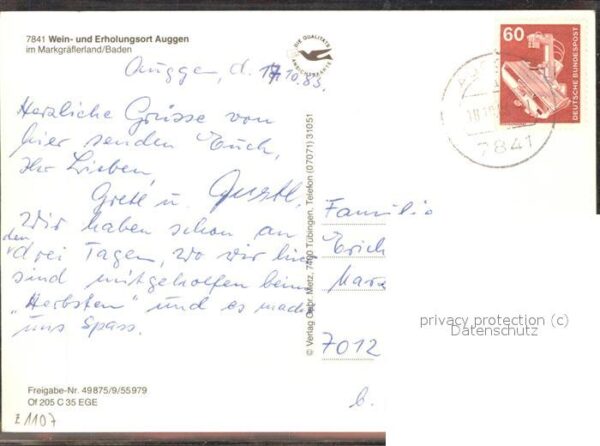 7841 Wein- und Erholungsort Auggen
im Markgräflerland/Baden
DIE QUALITÄTS
ANSICHTSKARTE
60
DEUTSCHE BUNDESPOST
7841
Auggen, d. 17.10.83.
Herzliche Grüsse von
hier senden Euch,
Ihr Lieben,
Gretl u. Gustl.
Wir haben schon an
den drei Tagen, wo wir hier
sind mitgeholfen beim
"Herbsten" und es macht
uns Spass.
© Verlag Gebr. Metz, 7400 Tübingen, Telefon (07071) 31051
Familie
Erich
7012
b.
privacy protection (c)
Datenschutz
Freigabe-Nr. 49875/9/55979
Of 205 C 35 EGE
E1107